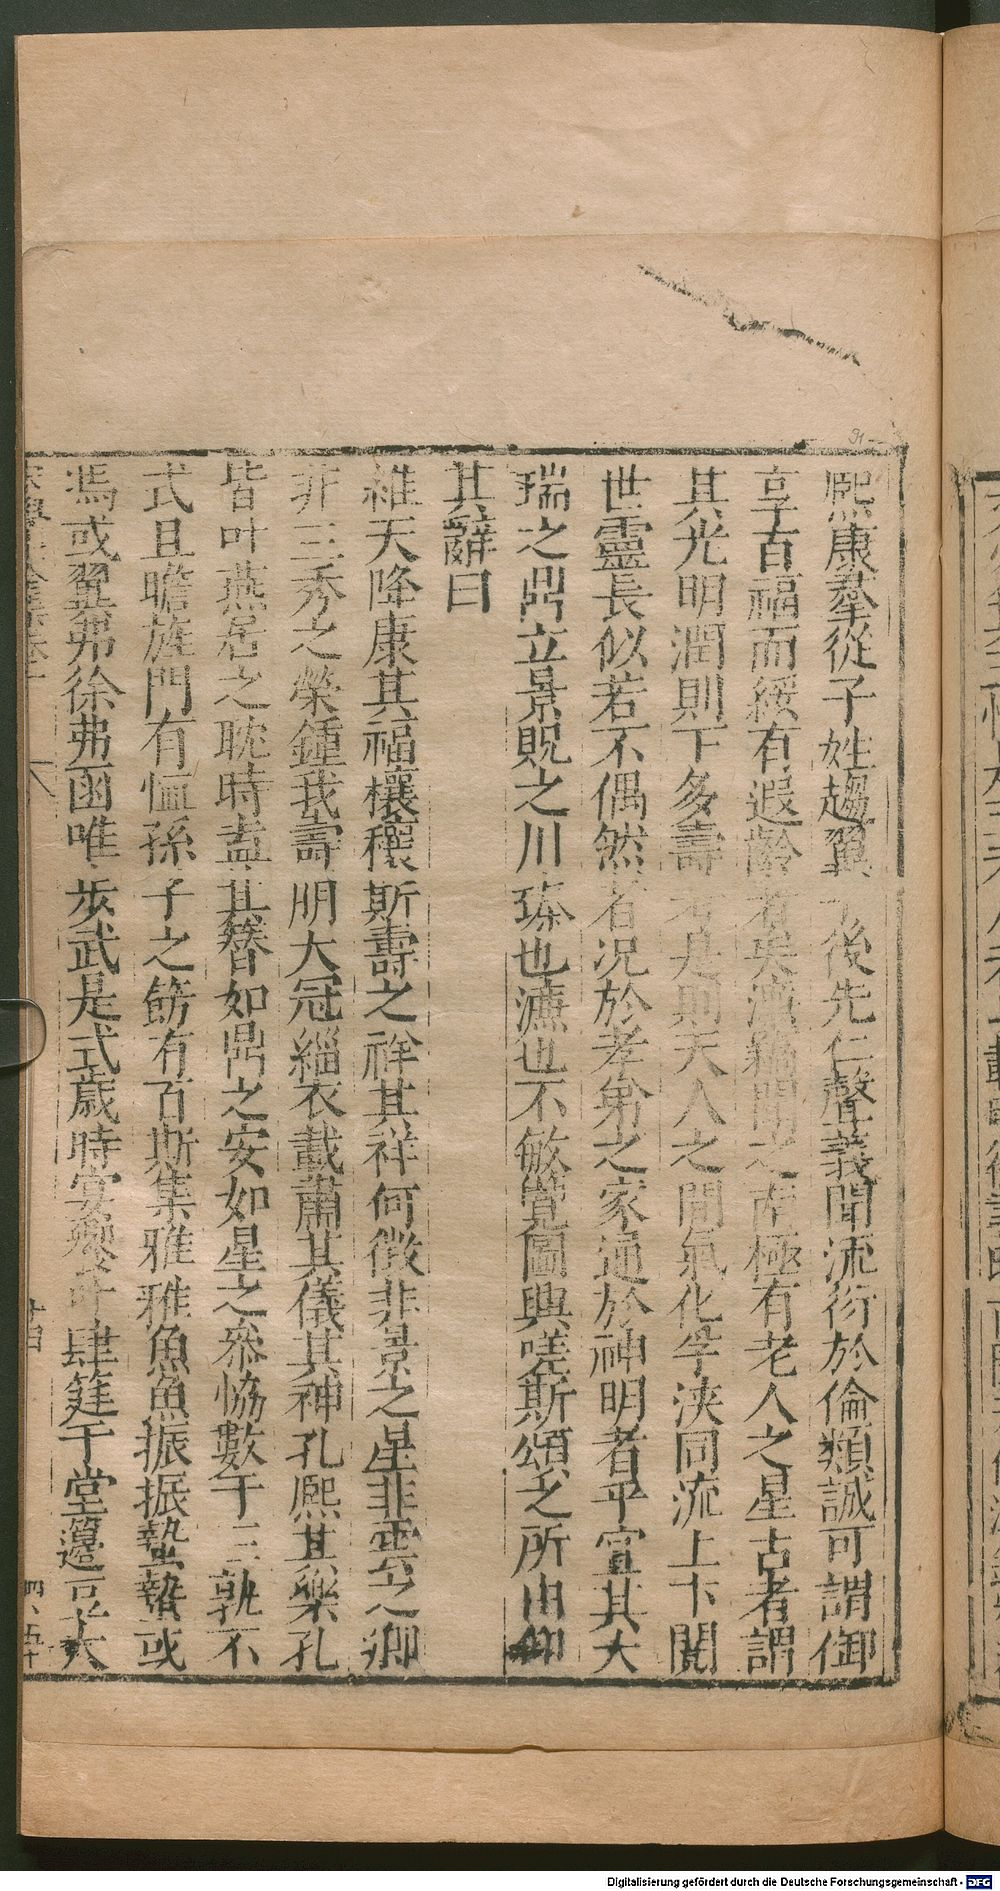 熈康羣從子姓趨翼後先仁聲義聞流衍於倫類誠可謂御
享百福而綏有遐齡者矣之南極有老人之星古者謂
其光明潤則下多壽是則天人之間氣化孚浹同流上下閱
世靈長似若不偶然者况於孝弟之家通於神明者乎宜其大
瑞之鼎立景貺之川臻也濂也不敏覽圖興嗟斯頌之所由仰
其辭曰
維天降康其福穰穰斯壽之祥其祥何徵非景之星非雲之卿
非三秀之榮鍾我壽朋大冠緇衣載肅其儀其神孔熈其樂孔
皆叶燕居之耽時盍其簪如鼎之安如星之叅恊數于三孰不
式且瞻旌門有恤孫子之飭有百斯集雅雅魚魚振振蟄蟄或
馮或翼弗徐弗亟唯步武是式歲時宴肆筵于堂籩豆大
六
四百五十
Digitalisierung gefördert durch die Deutsche Forschungsgemeinschaft - DFG